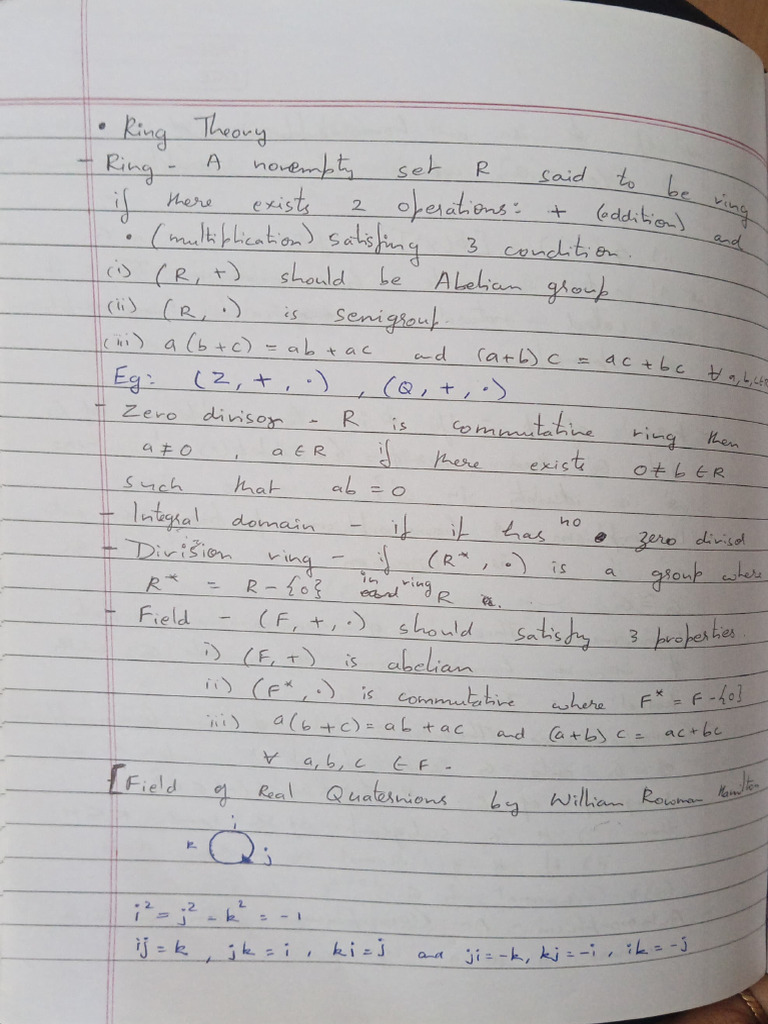 • Ring Theory
- Ring - A nonempty set R said to be ring
if there exists 2 operations: + (addition) and
• (multiplication) satisfing 3 condition.
(i) (R, +) should be Abelian group
(ii) (R, •) is semigroup.
(iii) a(b+c) = ab + ac and (a+b) c = ac + bc ∀ a, b, c ∈ R
Eg: (Z, +, •) , (Q, +, •)
- Zero divisor - R is commutative ring then
a ≠ 0 , a ∈ R if there exists 0 ≠ b ∈ R
such that ab = 0
- Integral domain - if it has no zero divisor
- Division ring - if (R*, •) is a group where
R* = R - {0} in ring R
- Field - (F, +, •) should satisfy 3 properties.
i) (F, +) is abelian
ii) (F*, •) is commutative where F* = F - {0}
iii) a(b+c) = ab + ac and (a+b) c = ac + bc
∀ a, b, c ∈ F.
[Field of Real Quaternions by William Rowman Hamilton
i
k j
i² = j² = k² = -1
ij = k , jk = i , ki = j and ji = -k, kj = -i , ik = -j